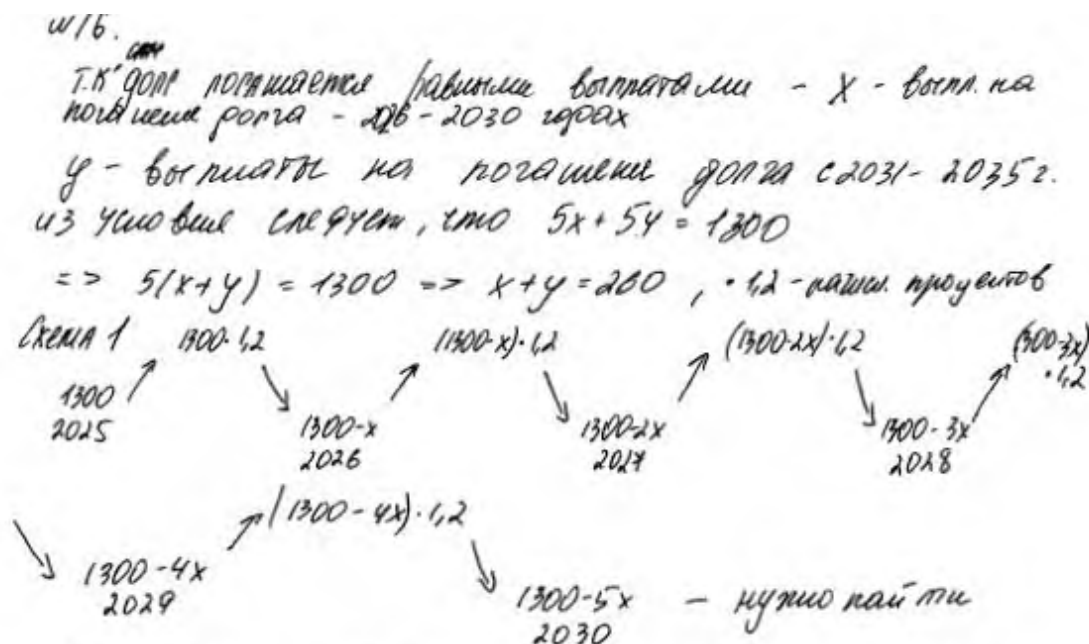 №16.
Т.К. долг погашается равными выплатами - X - выпл. на
погашение долга - 2026 - 2030 годах
y - выплаты на погашение долга с 2031 - 2035 г.
из условие следует, что 5x + 5y = 1300
=> 5(x+y) = 1300 => x+y = 260 , ·1,2 - начисл. процентов
Схема 1 1300·1,2 (1300-x)·1,2 (1300-2x)·1,2 (1300-3x)·1,2
1300 1300-x 1300-2x 1300-3x
2025 2026 2027 2028
(1300-4x)·1,2
1300-4x 1300-5x - нужно найти
2029 2030